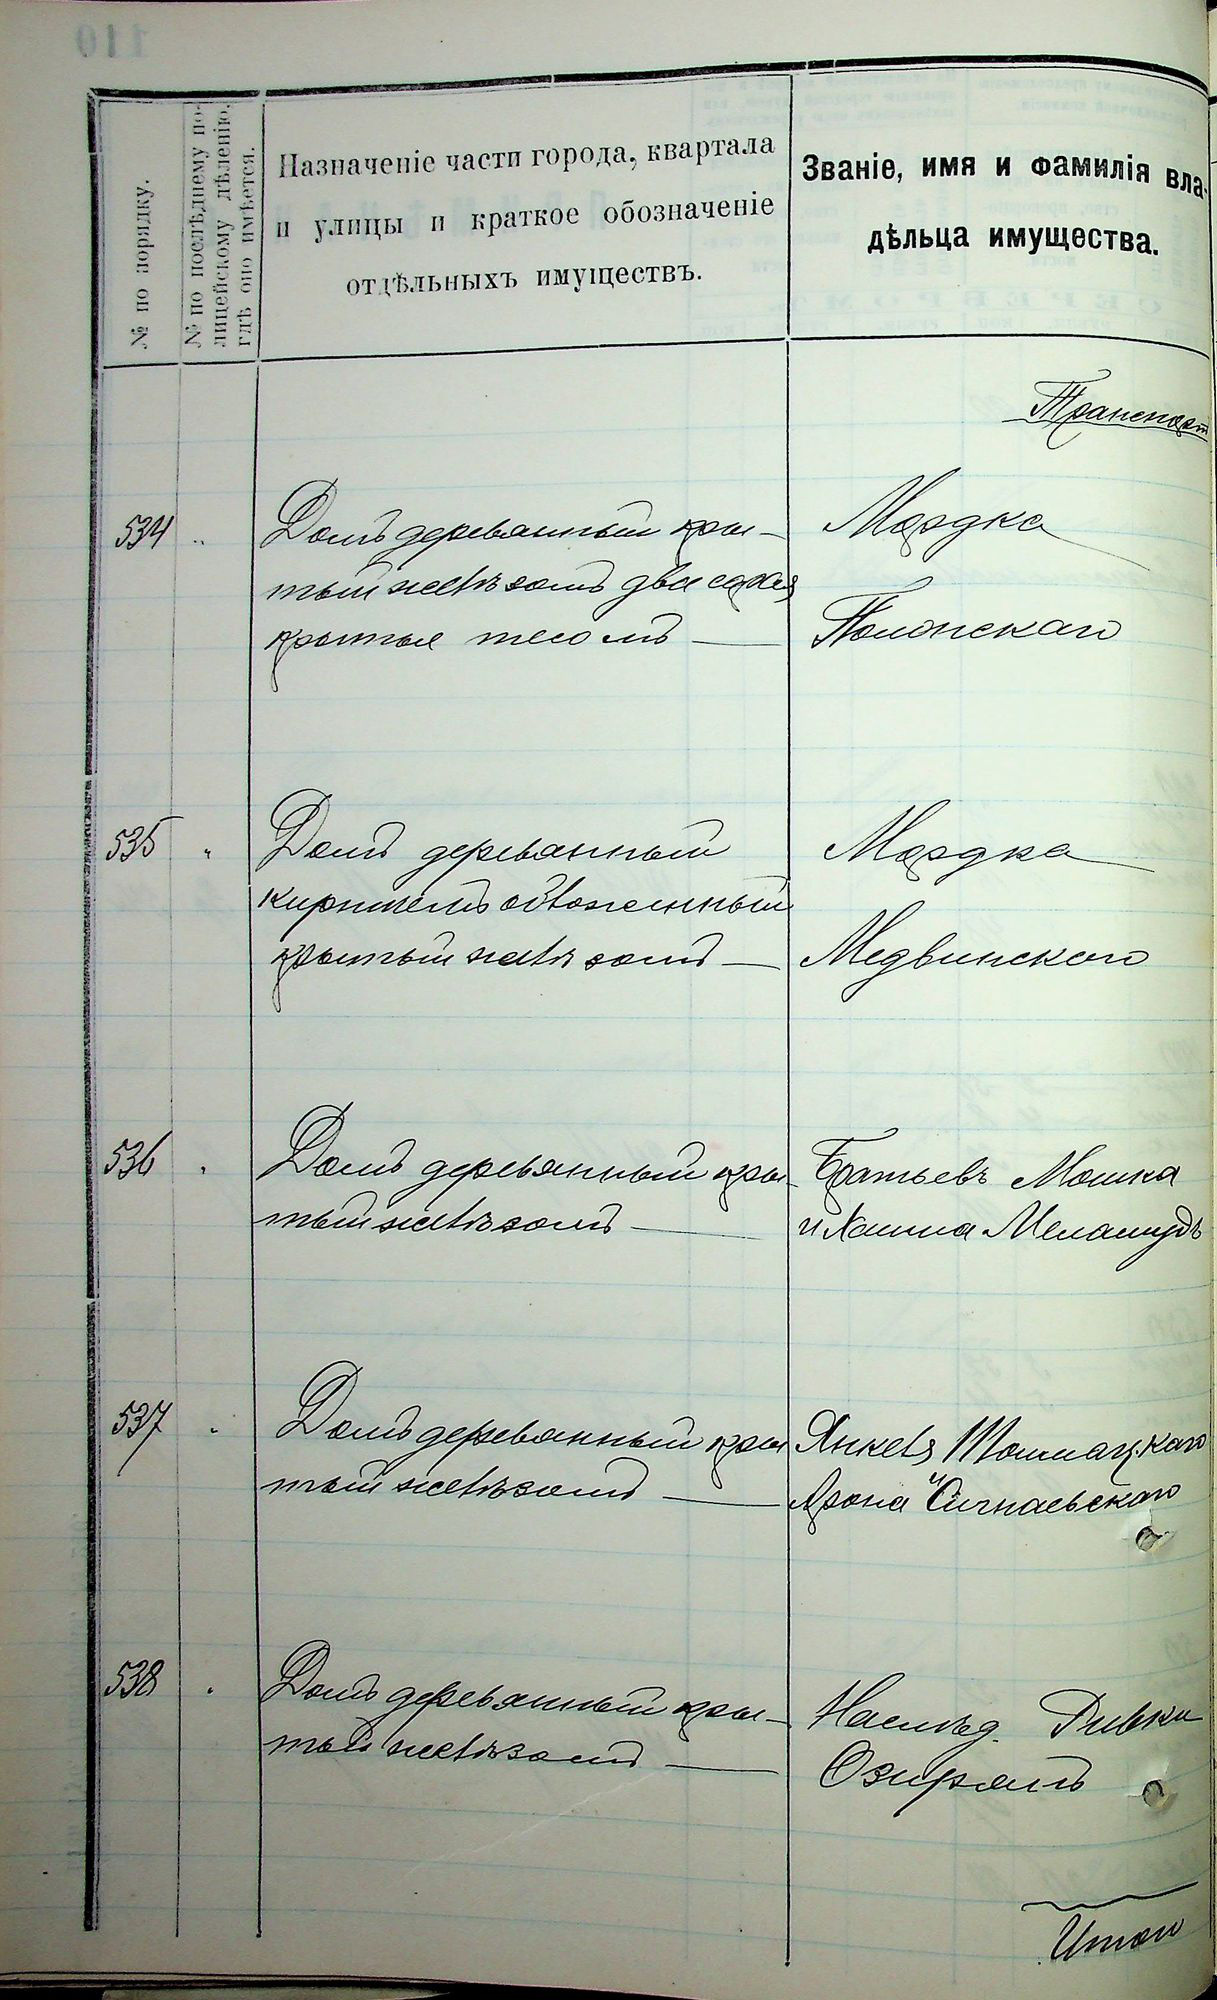 № по порядку.
№ по послѣднему по-
лицейскому дѣленію,
гдѣ оно имѣется.
Назначеніе части города, квартала
и улицы и краткое обозначеніе
отдѣльныхъ имуществъ.
Званіе, имя и фамилія вла-
дѣльца имущества.
Транспорт
534 "
Домъ деревянный кры-
тый желѣзомъ два сарая
крытые тесомъ —
Мордка
Полонскаго
535 "
Домъ деревянный
кирпичемъ обложенный
крытый желѣзомъ —
Мордка
Медвинскаго
536 "
Домъ деревянный кры-
тый желѣзомъ —
Братьевъ Мошка
и Хаима Меламудъ
537 "
Домъ деревянный кры
тый желѣзомъ —
Янкеля
Арона и
538 "
Домъ деревянный кры-
тый желѣзомъ —
Наслѣд. Ривки
Озирянъ
Итого
110